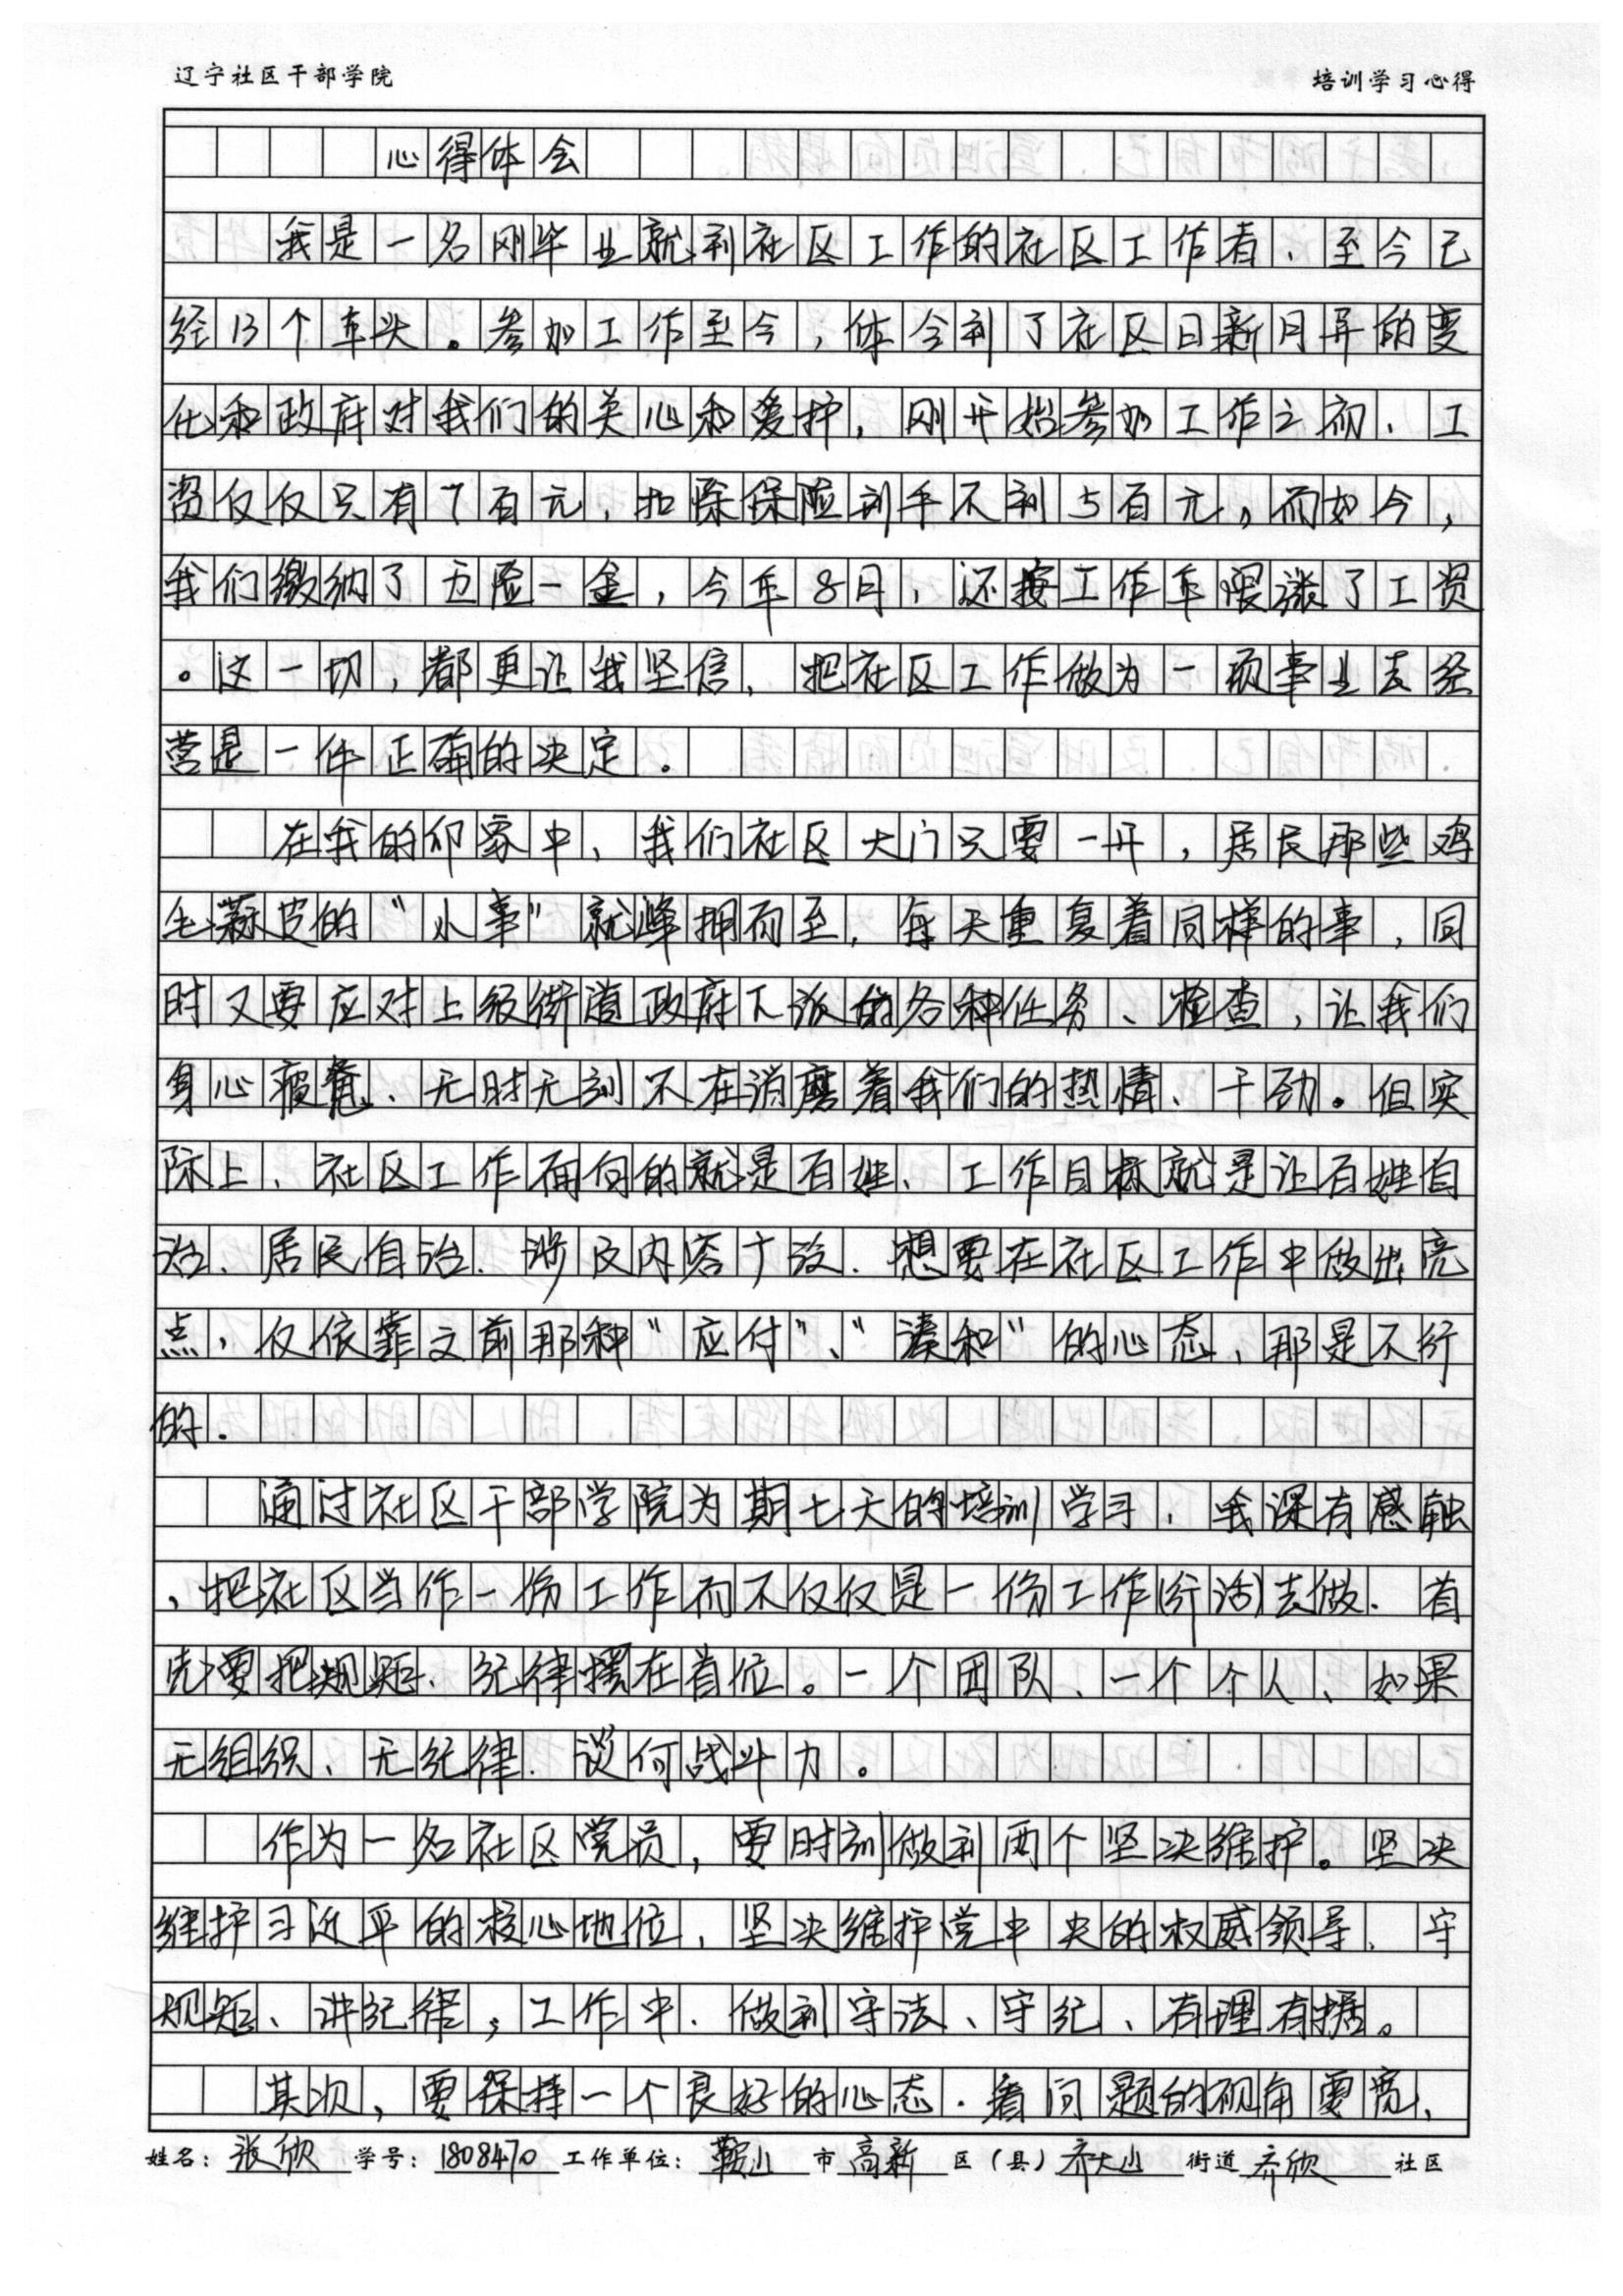 辽宁社区干部学院
培训学习心得
心得体会
我是一名刚毕业就到社区工作的社区工作者，至今已
经13个年头。参加工作至今，体会到了社区日新月异的变
化和政府对我们的关心和爱护，刚开始参加工作之初，工
资仅仅只有7百元，扣除保险到手不到5百元，而如今，
我们缴纳了五险一金，今年8月，还按工作年限涨了工资
。这一切，都更让我坚信，把社区工作做为一项事业去经
营是一件正确的决定。
在我的印象中，我们社区大门只要一开，居民那些鸡
毛蒜皮的“小事”就蜂拥而至，每天重复着同样的事，同
时又要应对上级街道政府下派的各种任务、检查，让我们
身心疲惫、无时无刻不在消磨着我们的热情、干劲。但实
际上，社区工作面向的就是百姓、工作目标就是让百姓自
治、居民自治．涉及内容广泛．想要在社区工作中做出亮
点，仅依靠之前那种“应付”、“凑和”的心态，那是不行
的．
通过社区干部学院为期七天的培训学习，我深有感触
，把社区当作一份工作而不仅仅是一份工作(行活)去做．首
先要把规矩、纪律摆在首位。一个团队、一个个人、如果
无组织、无纪律．谈何战斗力。
作为一名社区党员，要时刻做到两个坚决维护。坚决
维护习近平的核心地位，坚决维护党中央的权威领导、守
规矩、讲纪律，工作中．做到守法、守纪、有理有据。
其次，要保持一个良好的心态．看问题的视角要宽、
姓名：张欣 学号：1808470 工作单位：鞍山 市 高新 区（县）齐大山 街道 齐欣 社区